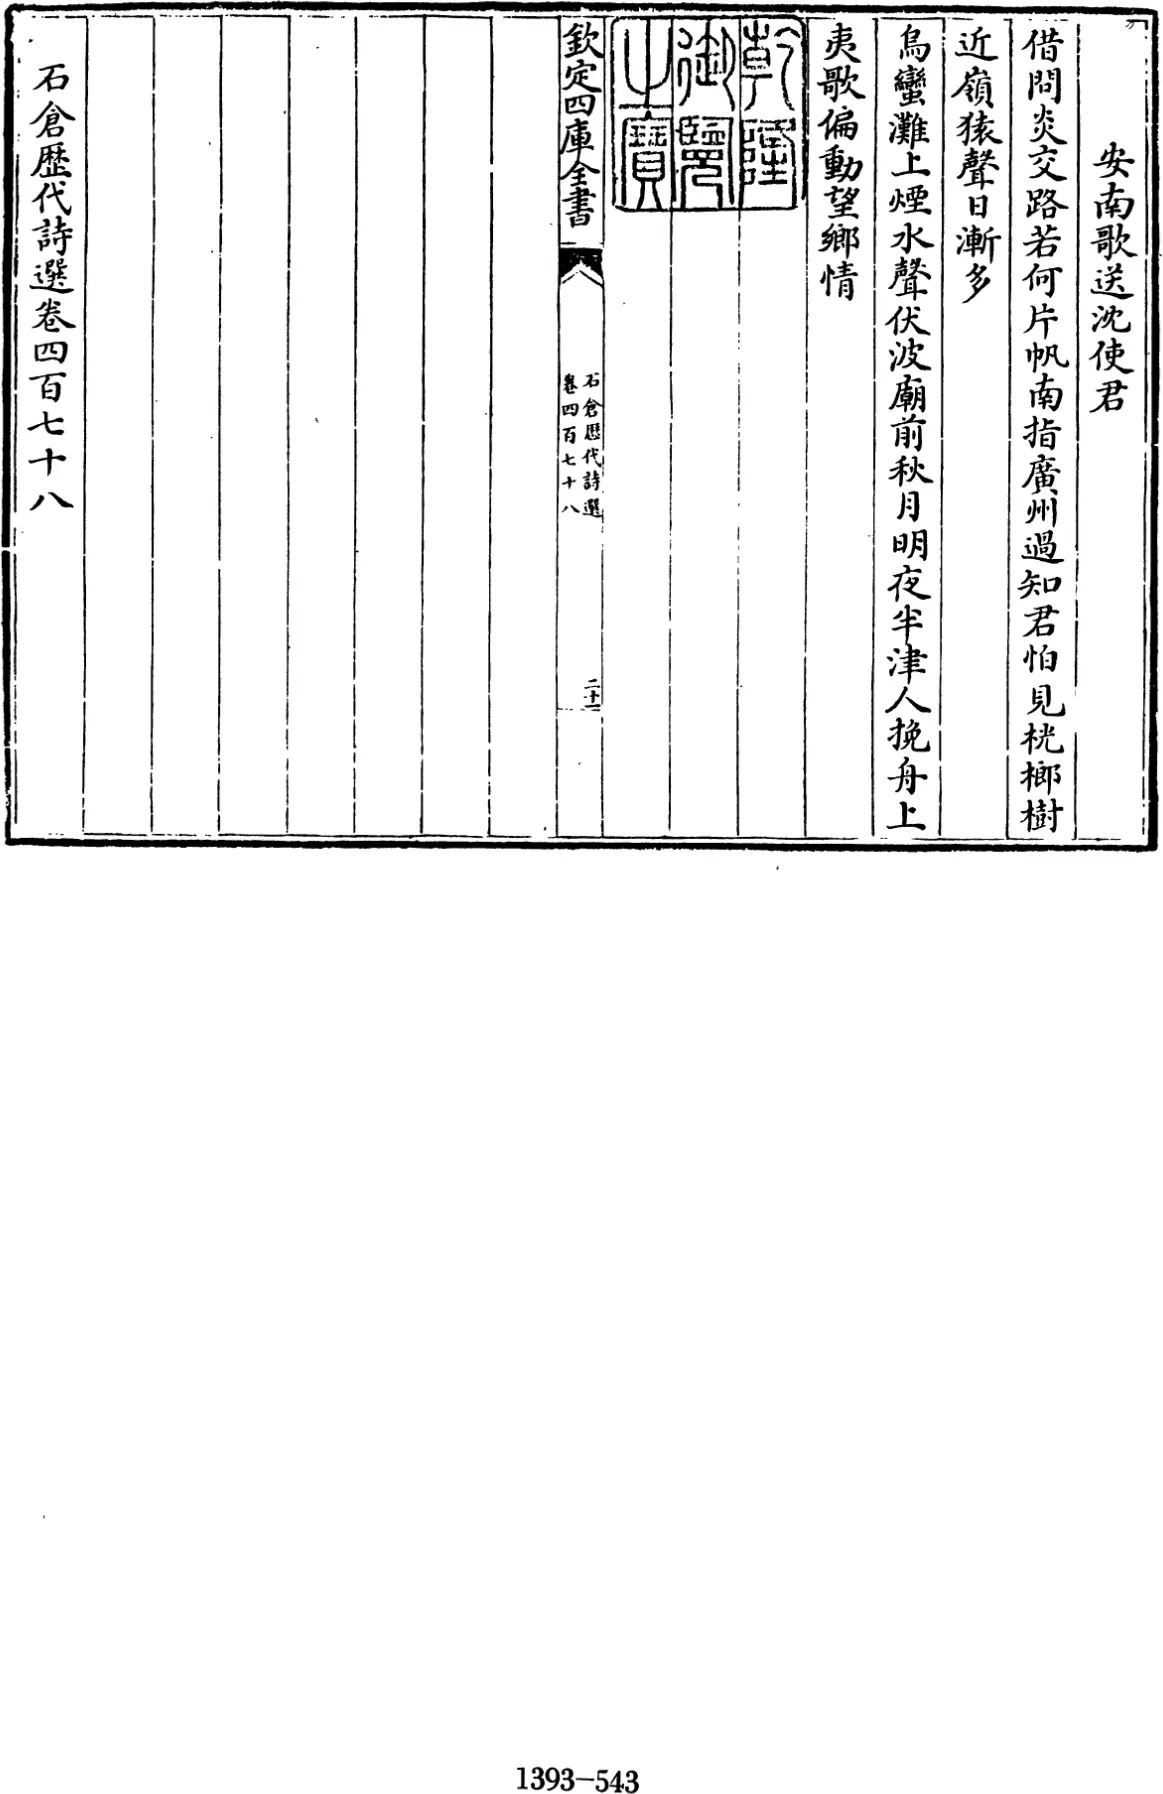 安南歌送沈使君
借問炎交路若何片帆南指廣州過知君怕見桄榔樹
近嶺猿聲日漸多
烏蠻灘上煙水聲伏波廟前秋月明夜半津人挽舟上
夷歌偏動望鄉情
乾隆
御覽
之寶
欽定四庫全書
石倉歷代詩選
卷四百七十八
二十一
石倉歷代詩選卷四百七十八
1393-543